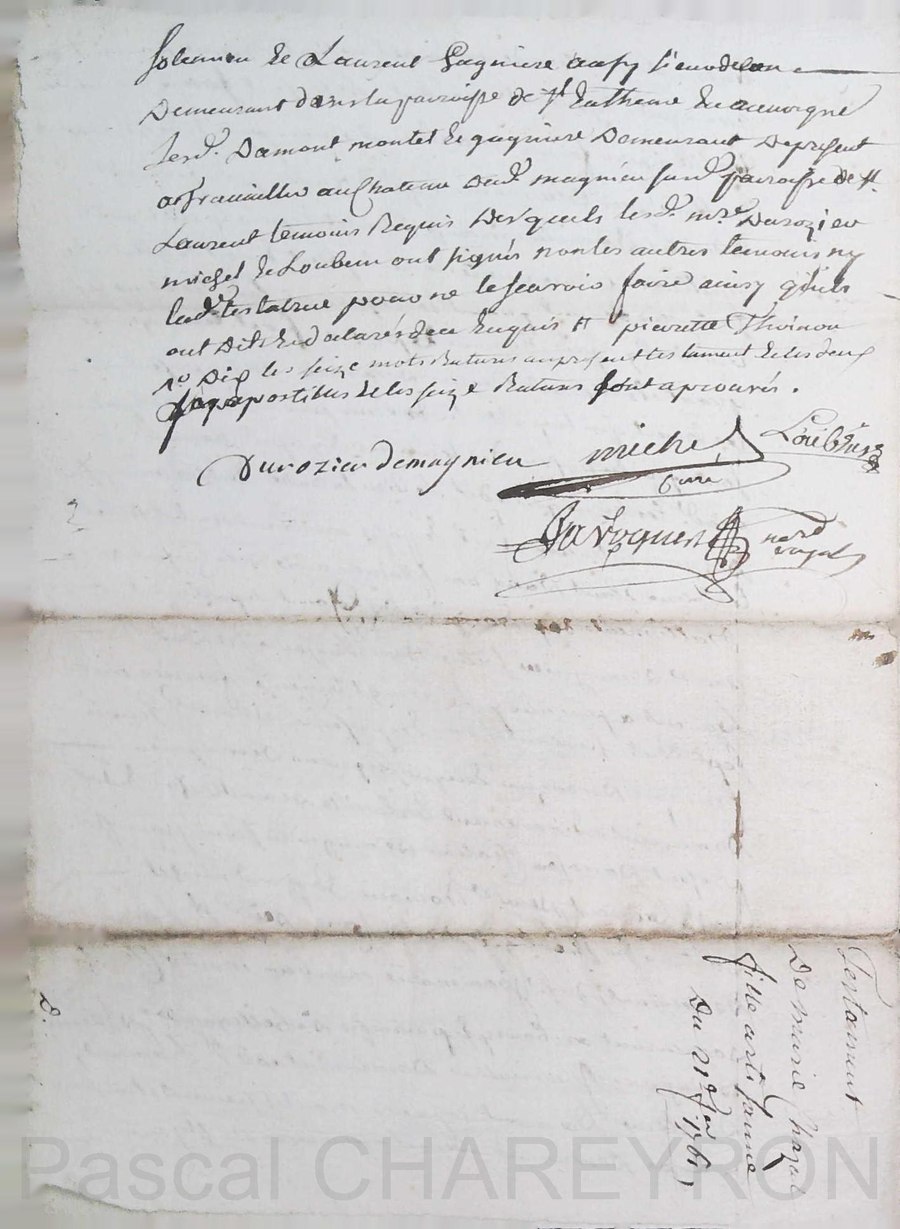 Solennon de Laurent Gagniere aussy sieurdelon
Demeurant dans la parroisse de St Catherine en auvergne
lesd. Damont montel et gagniere Demeurant De present
a Travailler au Chateau dud. magnieu susd. parroisse de St.
Laurent temoins Requis Desquels lesd. mre. Durozier
michel et Loubeur ont signés non les autres temoins ny
lad. testatrice pour ne le scavoir faire ainsy qu'ils
ont Dits et declarés de ce Enquis et pierrette Thvinon
no Dix les seize mots Ratures au present testament et les deux
apostilles et les seize Ratures sont aprouvés.
Durozier demagnieu
michel
Curé
nore
royal
Testament
De marie Chazal
fille artisanne
Du 21e
1761
Pascal CHAREYRON